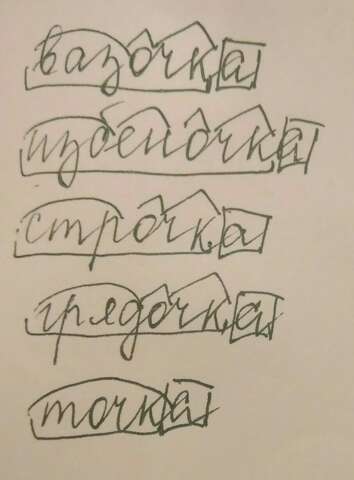 вазочка
избеночка
строчка
грядочка
точка